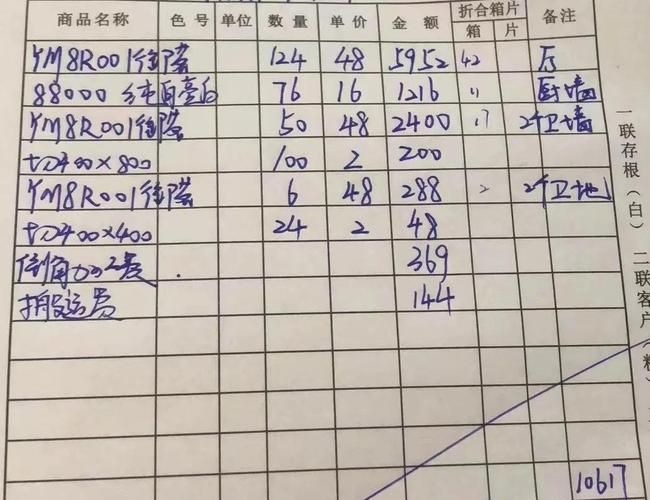 商品名称 色号 单位 数量 单价 金额 折合箱片 箱 片 备注
YM8R001 124 48 5952 42 厅
88000 纯白亮白 76 16 1216 11 厨墙
YM8R001 50 48 2400 17 2个卫墙
切400×800 100 2 200
YM8R001 6 48 288 2 2个卫地
切400×400 24 2 48
倒角加工费 369
搬运费 144
10617
一联存根(白) 二联客户(粉)